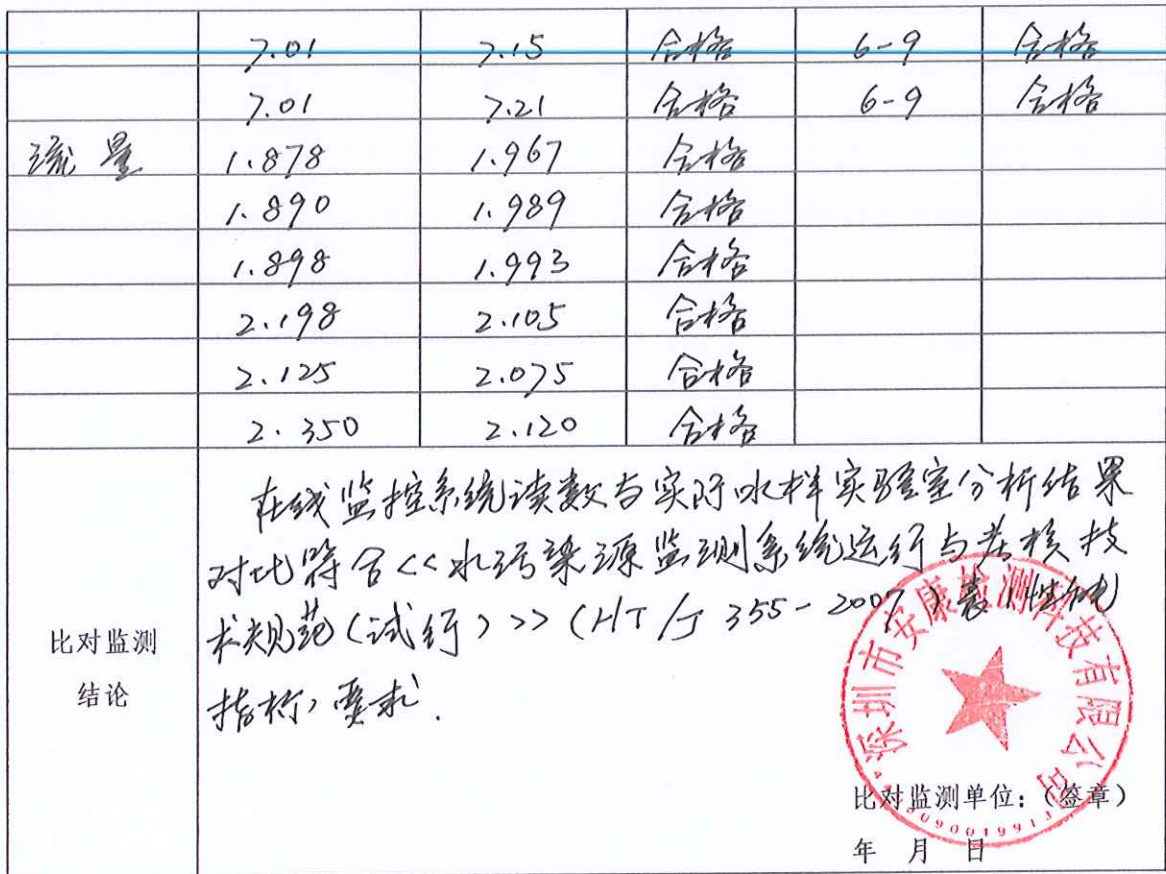 7.01 7.15 合格 6-9 合格
7.01 7.21 合格 6-9 合格
流量 1.878 1.967 合格
1.890 1.989 合格
1.898 1.993 合格
2.198 2.105 合格
2.125 2.075 合格
2.350 2.120 合格
比对监测
结论
在线监控系统读数与实际水样实验室分析结果
对比符合<<水污染源监测系统运行与考核技
术规范(试行)>>(HT/J 355-2007)表1性能
指标,要求.
深圳市安康检测科技有限公司
比对监测单位:(签章)
年 月 日